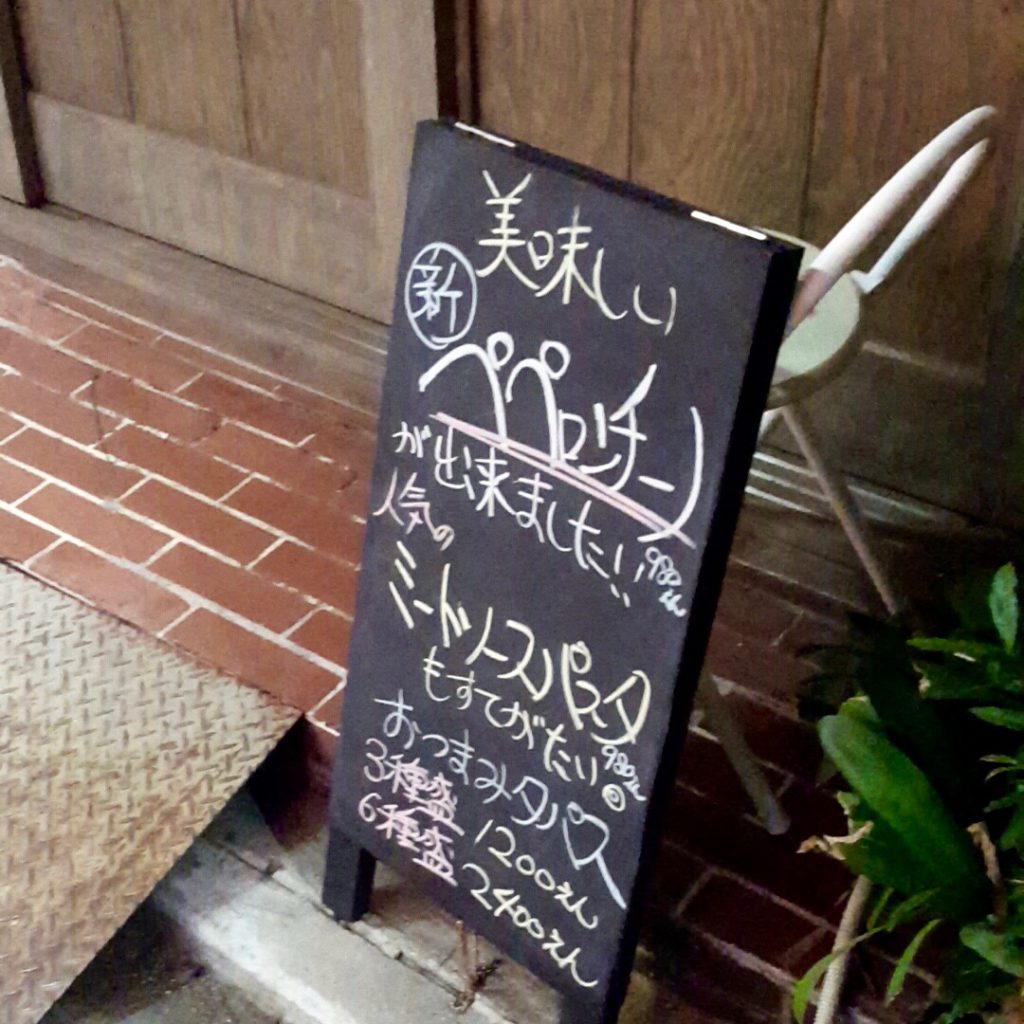 美味しい
新
ペペロンチーノ
が出来ましたい、、
980えん
人気の
ミートソースパスタ
もすてがたい◎
980えん
おつまみタパス
3種盛 1200えん
6種盛 2400えん